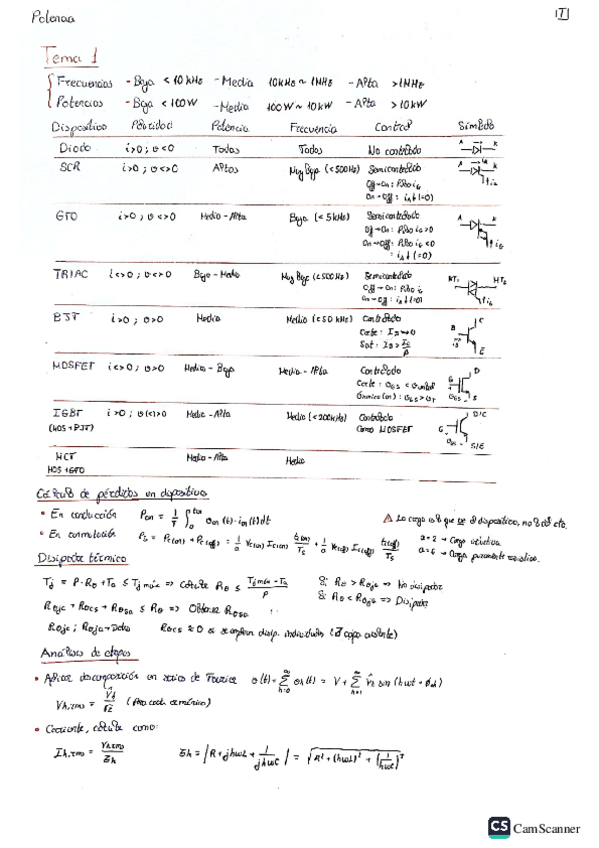 Potencia
1
Tema 1
Frecuencias - Baja < 10 kHz - Media 10kHz ~ 1MHz - Alta > 1MHz
Potencias - Baja < 100W - Media 100W ~ 10kW - Alta > 10kW
Dispositivo Polaridad Potencia Frecuencia Control Símbolo
Diodo i>0 ; v<0 Todas Todas No controlado A K
SCR i>0 ; v<>0 Altas Muy Baja (<500Hz) Semicontrolado
Off→On: Pulso iG
On→Off: iA↓(=0)
GTO i>0 ; v<>0 Media - Alta Baja (<5kHz) Semicontrolado A K
Off→On: Pulso iG>0
On→Off: Pulso iG<0
iA↓(=0)
TRIAC i<>0 ; v<>0 Baja - Media Muy Baja (<500Hz) Semicontrolado
Off→On: Pulso iG
On→Off: iA↓(=0)
BJT i>0 ; v>0 Media Media (<50kHz) Controlado
Corte: IB→0
Sat: IB > IC/β
MOSFET i<>0 ; v>0 Media - Baja Media - Alta Controlado
Corte: vGS < vumbral
vGS > VT
IGBT i>0 ; v(<)>0 Media - Alta Media (<200kHz) Controlado
(MOS + BJT) Como MOSFET
MCT Media - Alta Media
MOS + GTO
Cálculo de pérdidas en dispositivo
• En conducción Pon = 1/T ∫₀^ton von(t)·ion(t)dt ⚠ La carga es lo que ve el dispositivo, no la cte.
• En conmutación a = 2 → Carga inductiva
a = 6 → Carga puramente resistiva.
Disipador térmico
Tj = P·Rθ + Ta ≤ Tjmáx => Calcula Rθ ≤ (Tjmáx - Ta)/P Si Rθ > Rθja => No disipador
Si Rθ < Rθja => Disipador
Rθjc + Rθcs + Rθsa ≤ Rθ => Obtener Rθsa
Rθjc ; Rθja → Datos Rθcs ≈ 0 si se emplean disip. individuales (∄ capa aislante)
Análisis de etapas
• Aplicar descomposición en series de Fourier v(t) = Σ vh(t) = V + Σ V̂h sen(hωt + φh)
Vh,rms = V̂h/√2 (Para cada armónico)
• Corriente, calcula como:
Ih,rms = Vh,rms/Zh Zh = |R + jhωL + 1/(jhωC)| = √(R² + (hωL)² + (1/(hωC))²)
CS CamScanner